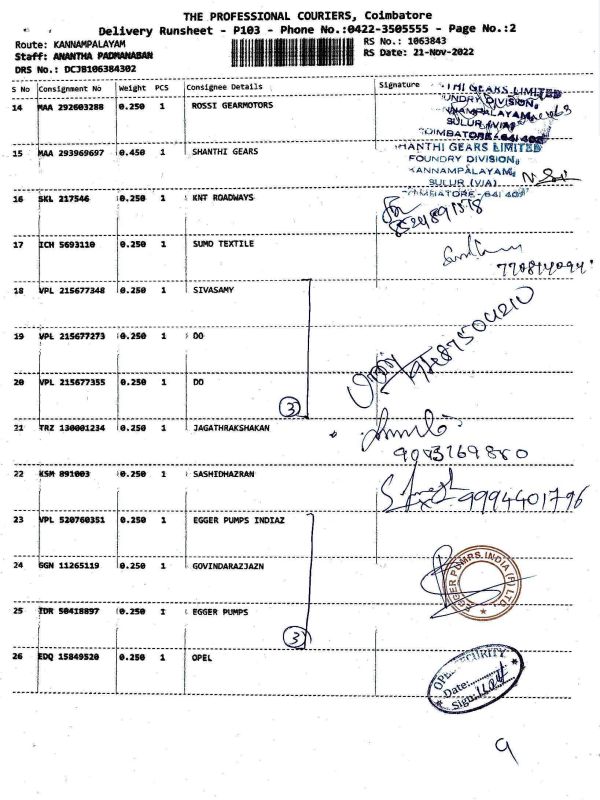 THE PROFESSIONAL COURIERS, Coimbatore
Delivery Runsheet - P103 - Phone No.:0422-3505555 - Page No.:2
Route: KANNAMPALAYAM
RS No.: 1063843
Staff: ANANTHA PADMANABAN
RS Date: 21-Nov-2022
DRS No.: DCJB106384302
S No Consignment No Weight PCS Consignee Details Signature
14 MAA 292603288 0.250 1 ROSSI GEARMOTORS
SHANTHI GEARS LIMITED
FOUNDRY DIVISION,
KANNAMPALAYAM,
SULUR (VIA)
COIMBATORE-641 402
15 MAA 293969697 0.450 1 SHANTHI GEARS
SHANTHI GEARS LIMITED
FOUNDRY DIVISION,
KANNAMPALAYAM,
SULUR (VIA)
COIMBATORE-641 402
16 SKL 217546 0.250 1 KNT ROADWAYS
17 ICH 5693110 0.250 1 SUMO TEXTILE
18 VPL 215677348 0.250 1 SIVASAMY
19 VPL 215677273 0.250 1 DO
20 VPL 215677355 0.250 1 DO
3
21 TRZ 130001234 0.250 1 JAGATHRAKSHAKAN
22 KSM 891003 0.250 1 SASHIDHAZRAN
9994401796
23 VPL 520760351 0.250 1 EGGER PUMPS INDIAZ
24 GGN 11265119 0.250 1 GOVINDARAZJAZN
EGGER PUMPS INDIA (P) LTD.
25 IDR 50418897 0.250 1 EGGER PUMPS
3
26 EDQ 15849520 0.250 1 OPEL
OPEL SECURITY
Date:
Sign:
9